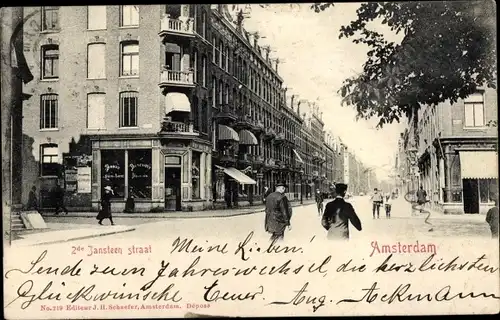 2de Jansteen straat
Amsterdam
Meine Lieben!
Sende zum Jahreswechsel, die herzlichsten
Glückwünsche Euer. Aug. Ackermann.
No. 719 Editeur J. H. Schaefer, Amsterdam. Déposé